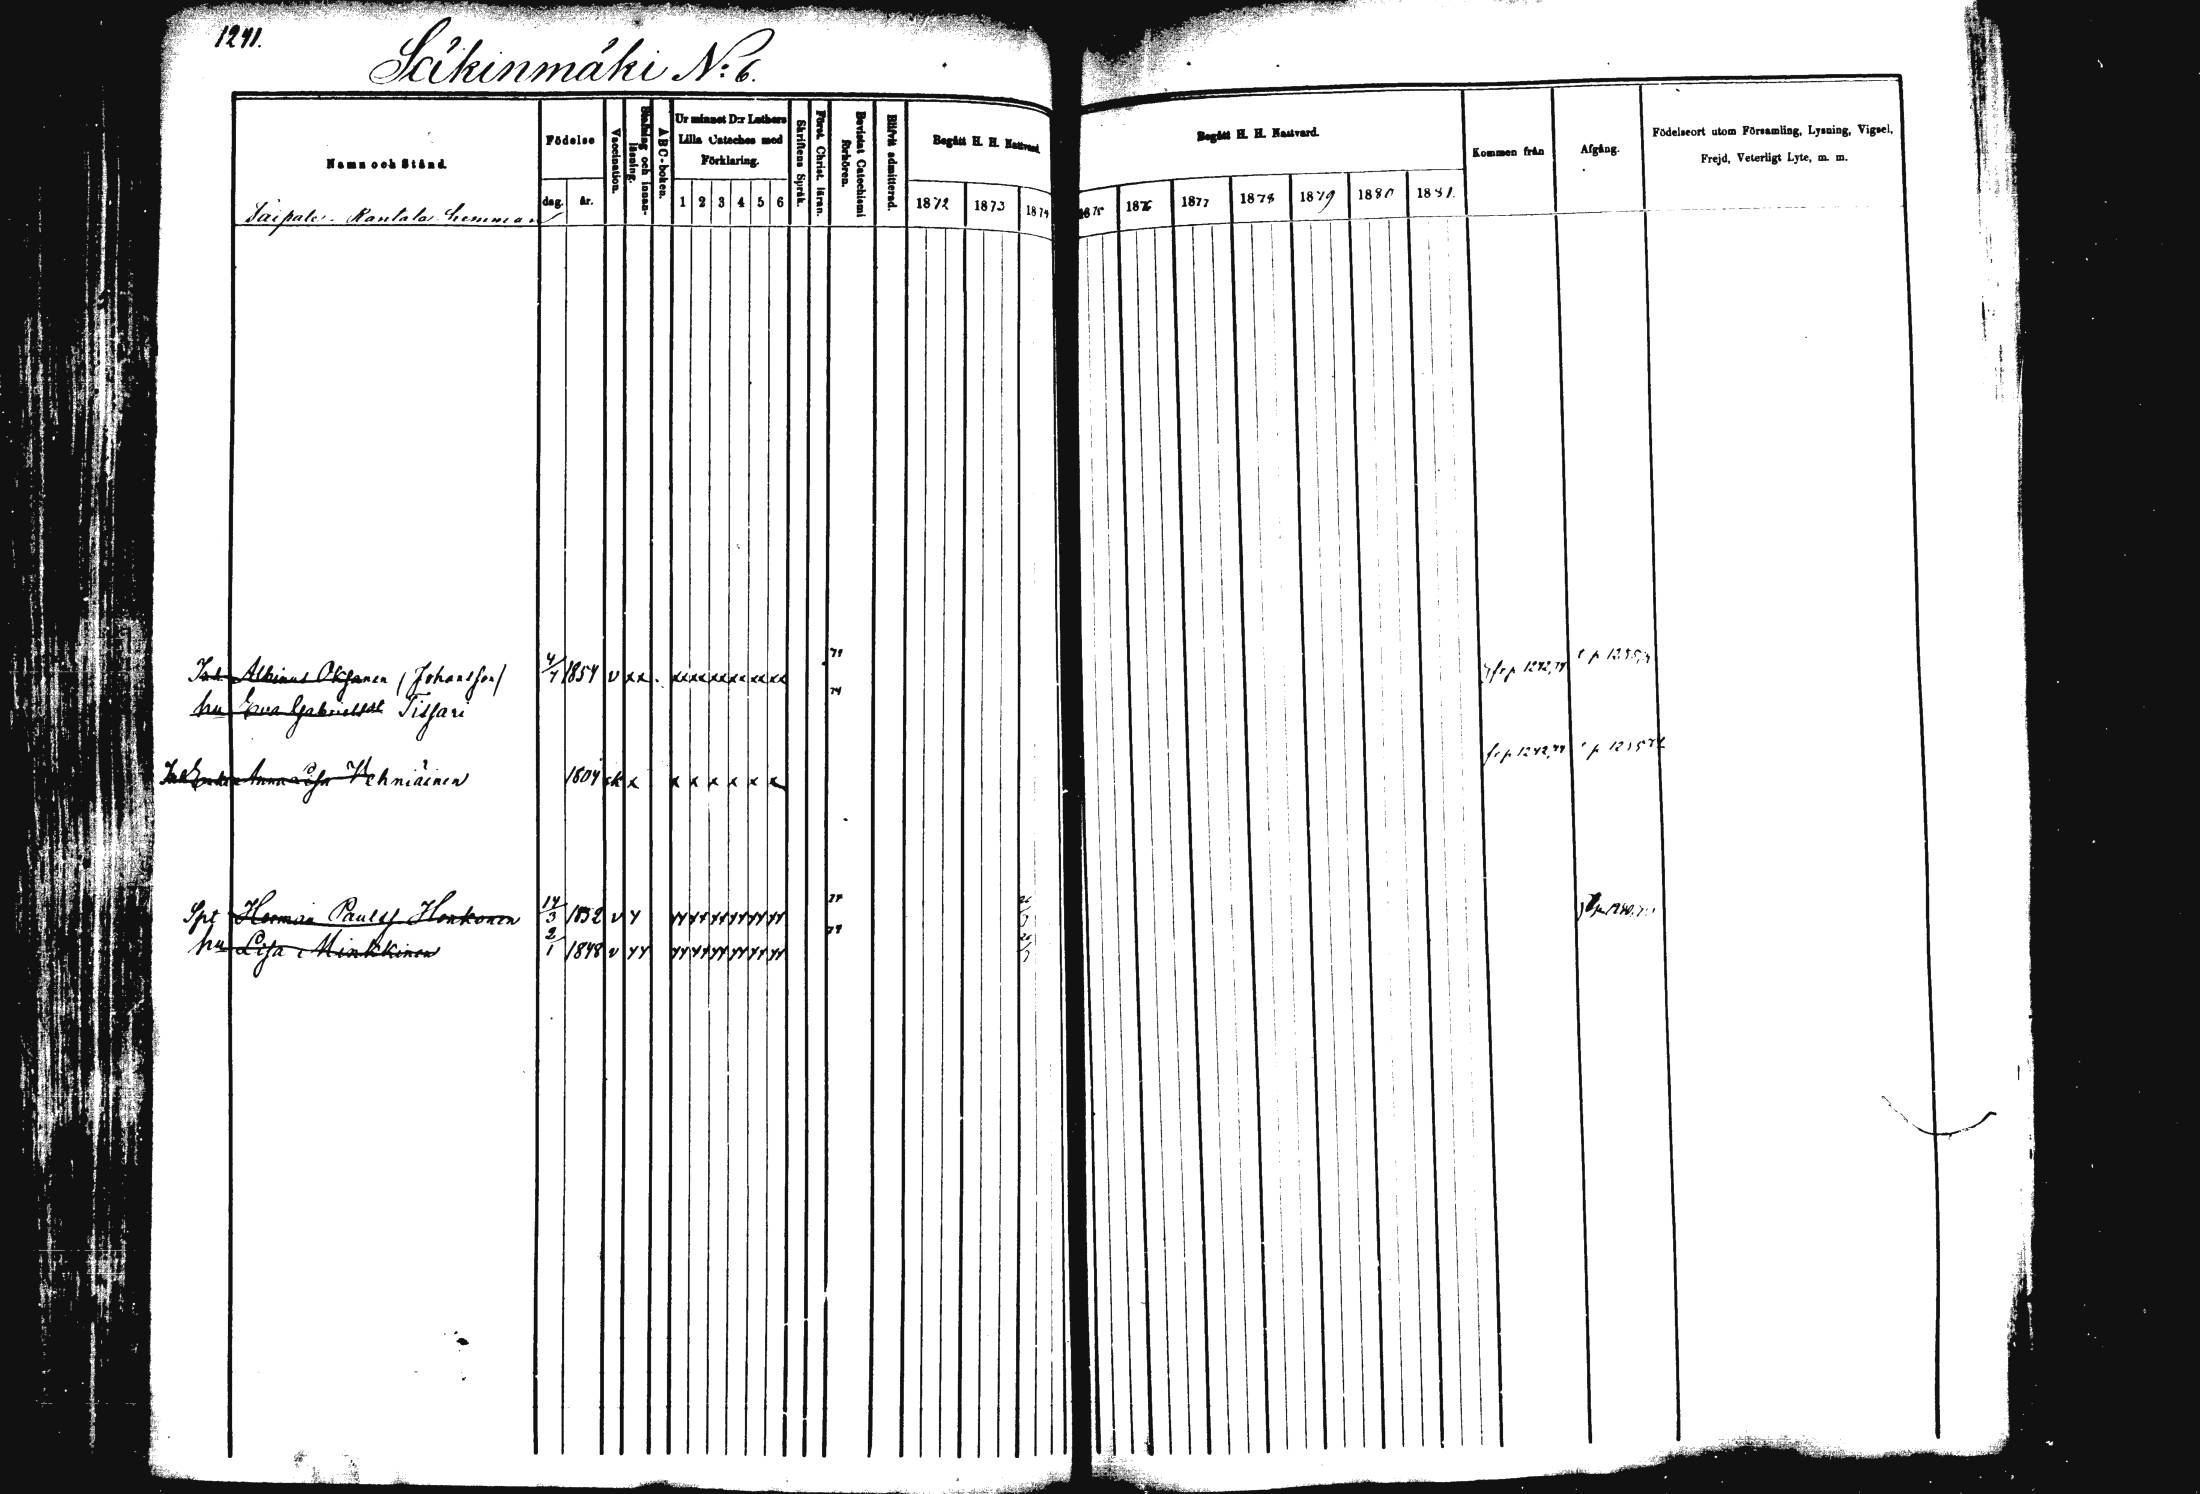 1241.
Säkinmäki N:6.
Namn och Stånd.
Födelse
dag. år.
Vaccination.
Stafning och innan-läsning.
ABC-boken.
Ur minnet D:r Luthers
Lilla Cateches med
Förklaring.
1 2 3 4 5 6
Skriftens Språk.
Först. Christ. läran.
Bevistat Catechismi förhören.
Blifvit admitterad.
Begått H. H. Nattvard.
1872 1873 1874
Begått H. H. Nattvard.
1875 1876 1877 1878 1879 1880 1881.
Kommen från
Afgång.
Födelseort utom Församling, Lysning, Vigsel,
Frejd, Veterligt Lyte, m. m.
Taipale. Rantala hemman
Albinus Oksanen (Johansson) 4/7 1854 v xx xx xx xx xx xx xx fr p 1242,74
hu Eva Gabrielsdr Tissari 74
Enkan Anna Lisa Vehniäinen 1804 x x x x x x x fr p 1242,74
Spt Herman Paulss Honkonen 14/3 1852 v y yy yy yy yy yy yy
hu Lisa Minkkinen 2/1 1848 v yy yy yy yy yy yy yy